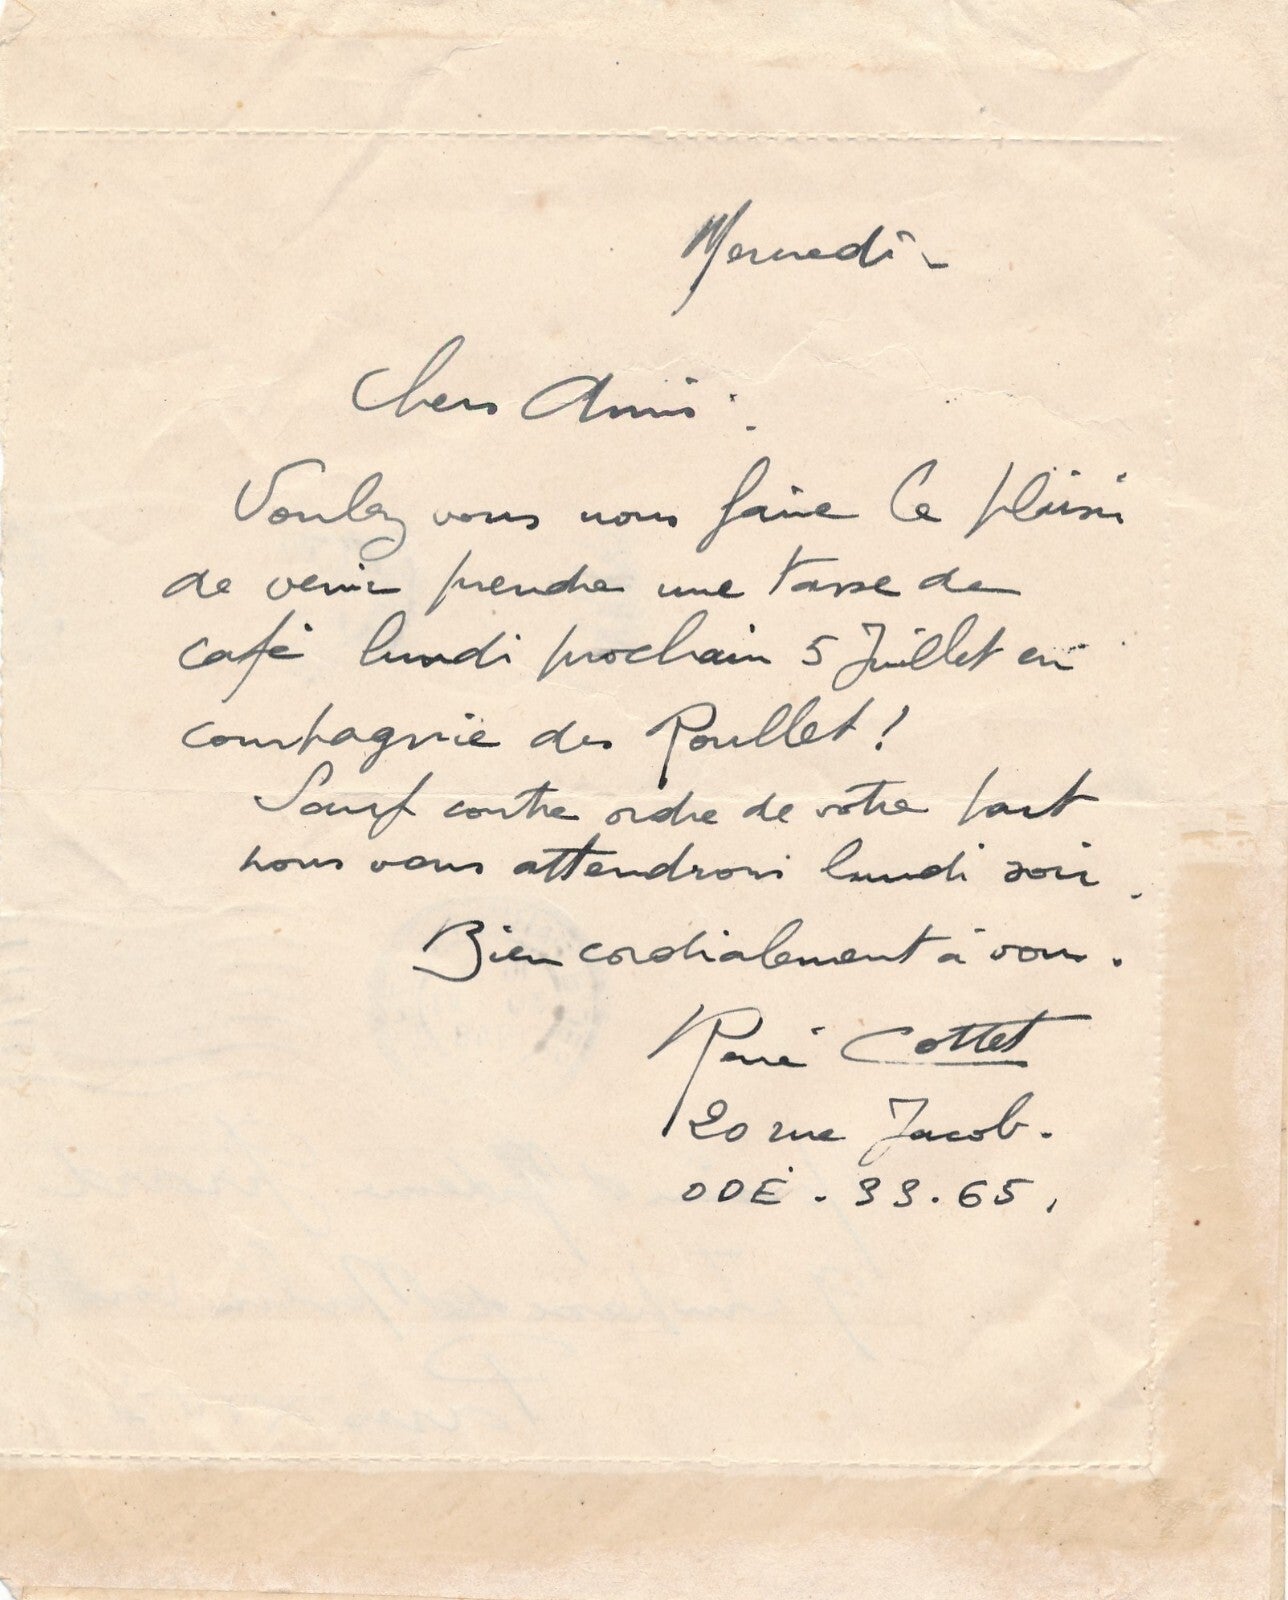 Mercredi -
Chers Amis :
Voulez vous nous faire le plaisir
de venir prendre une tasse de
café lundi prochain 5 Juillet en
compagnie des Roullet !
Sauf contre ordre de votre part
nous vous attendrons lundi soir.
Bien cordialement à vous.
René Cottet
20 rue Jacob.
ODÉ. 33.65.